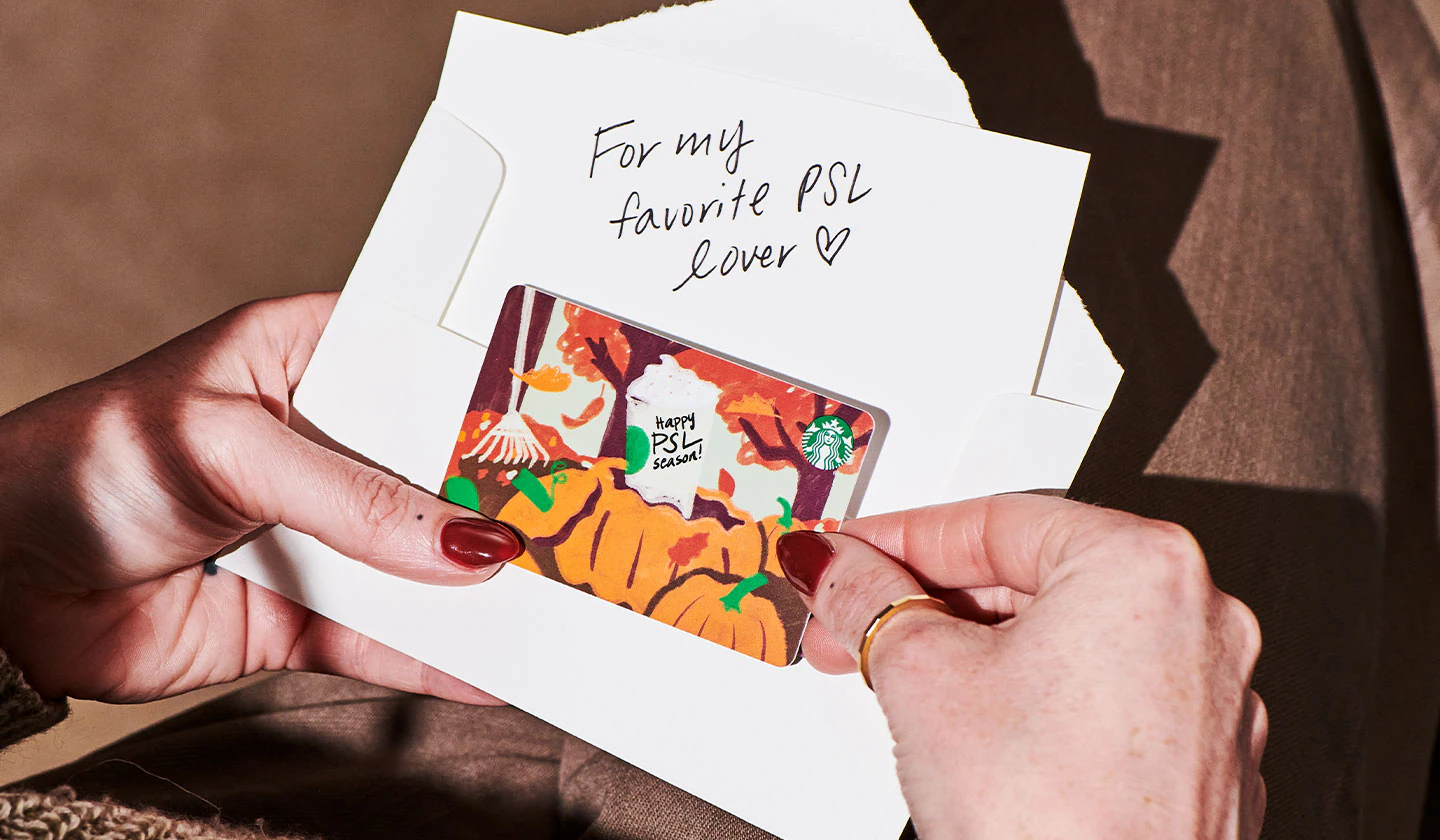 For my
favorite PSL
lover ♡
Happy
PSL
season!